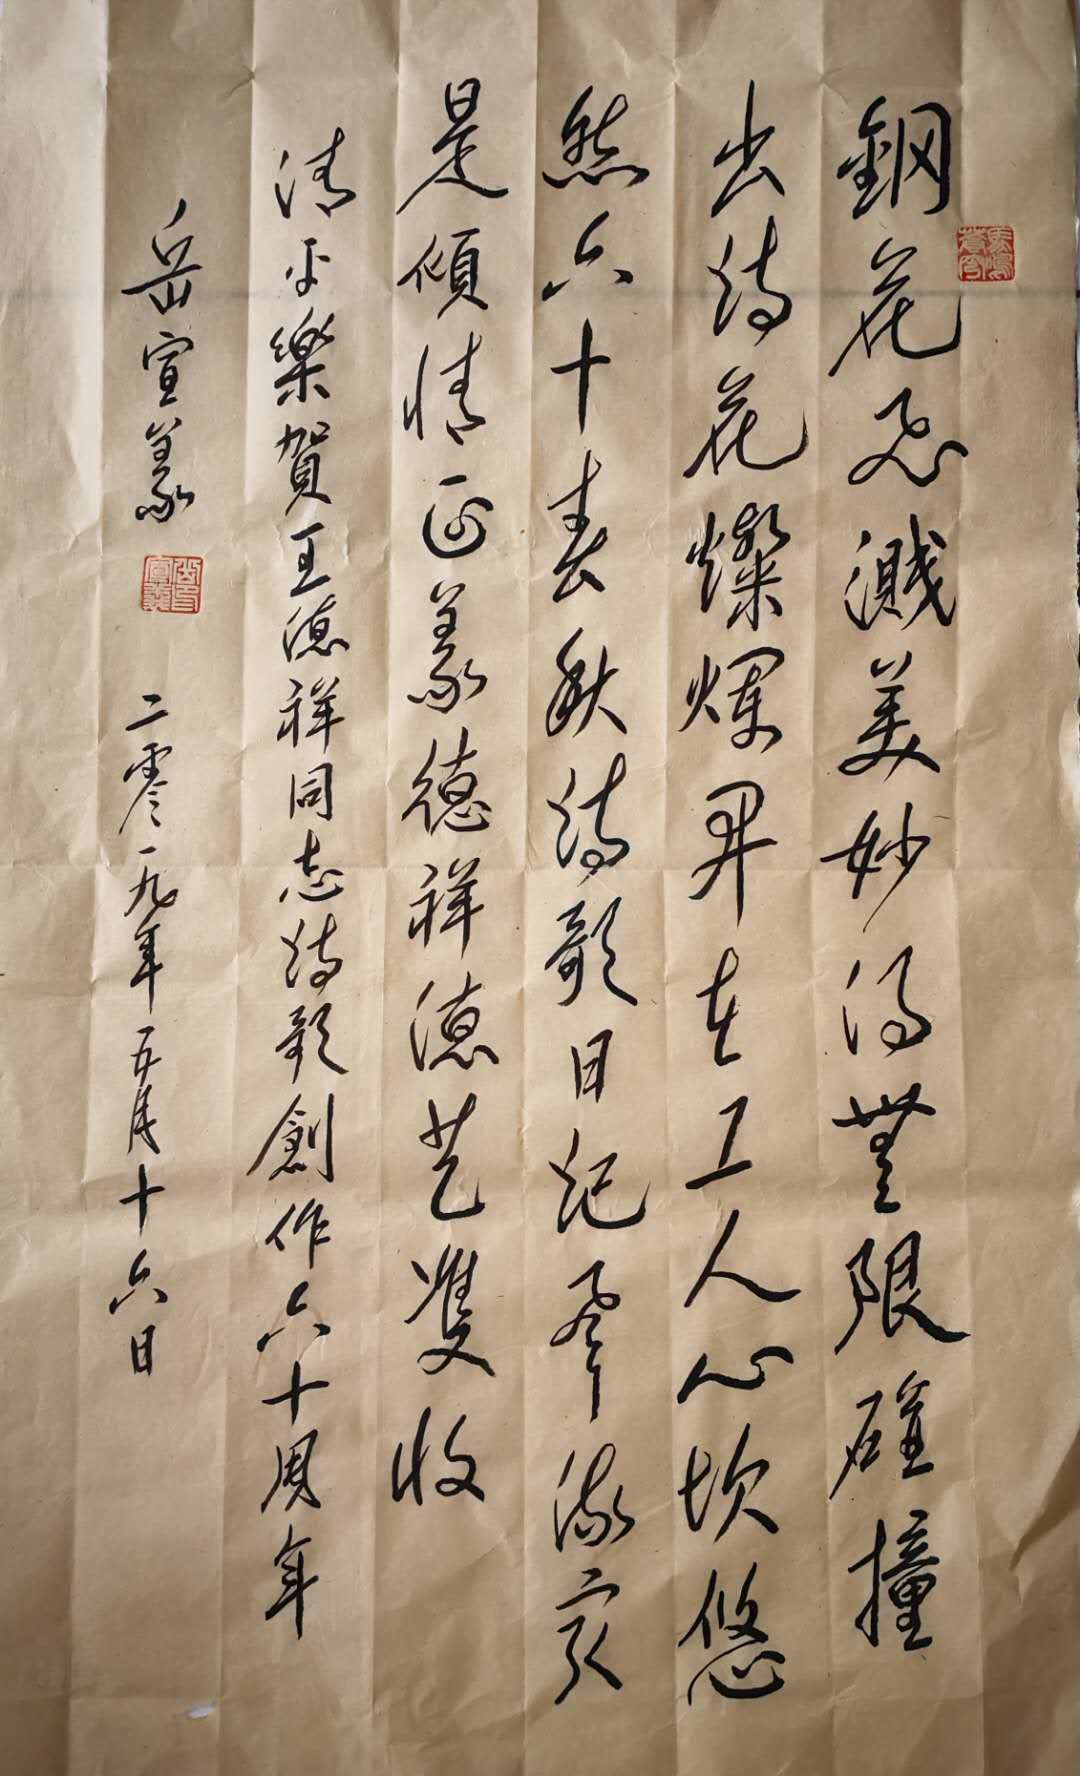 鋼花飛濺美妙得無限碰撞
出诗花燦爛開在工人心坎悠
然六十春秋诗歌日纪争流最
是傾情正義德祥德艺雙收
清平樂賀王德祥同志诗歌創作六十周年
岳宣義 二零一九年五月十六日